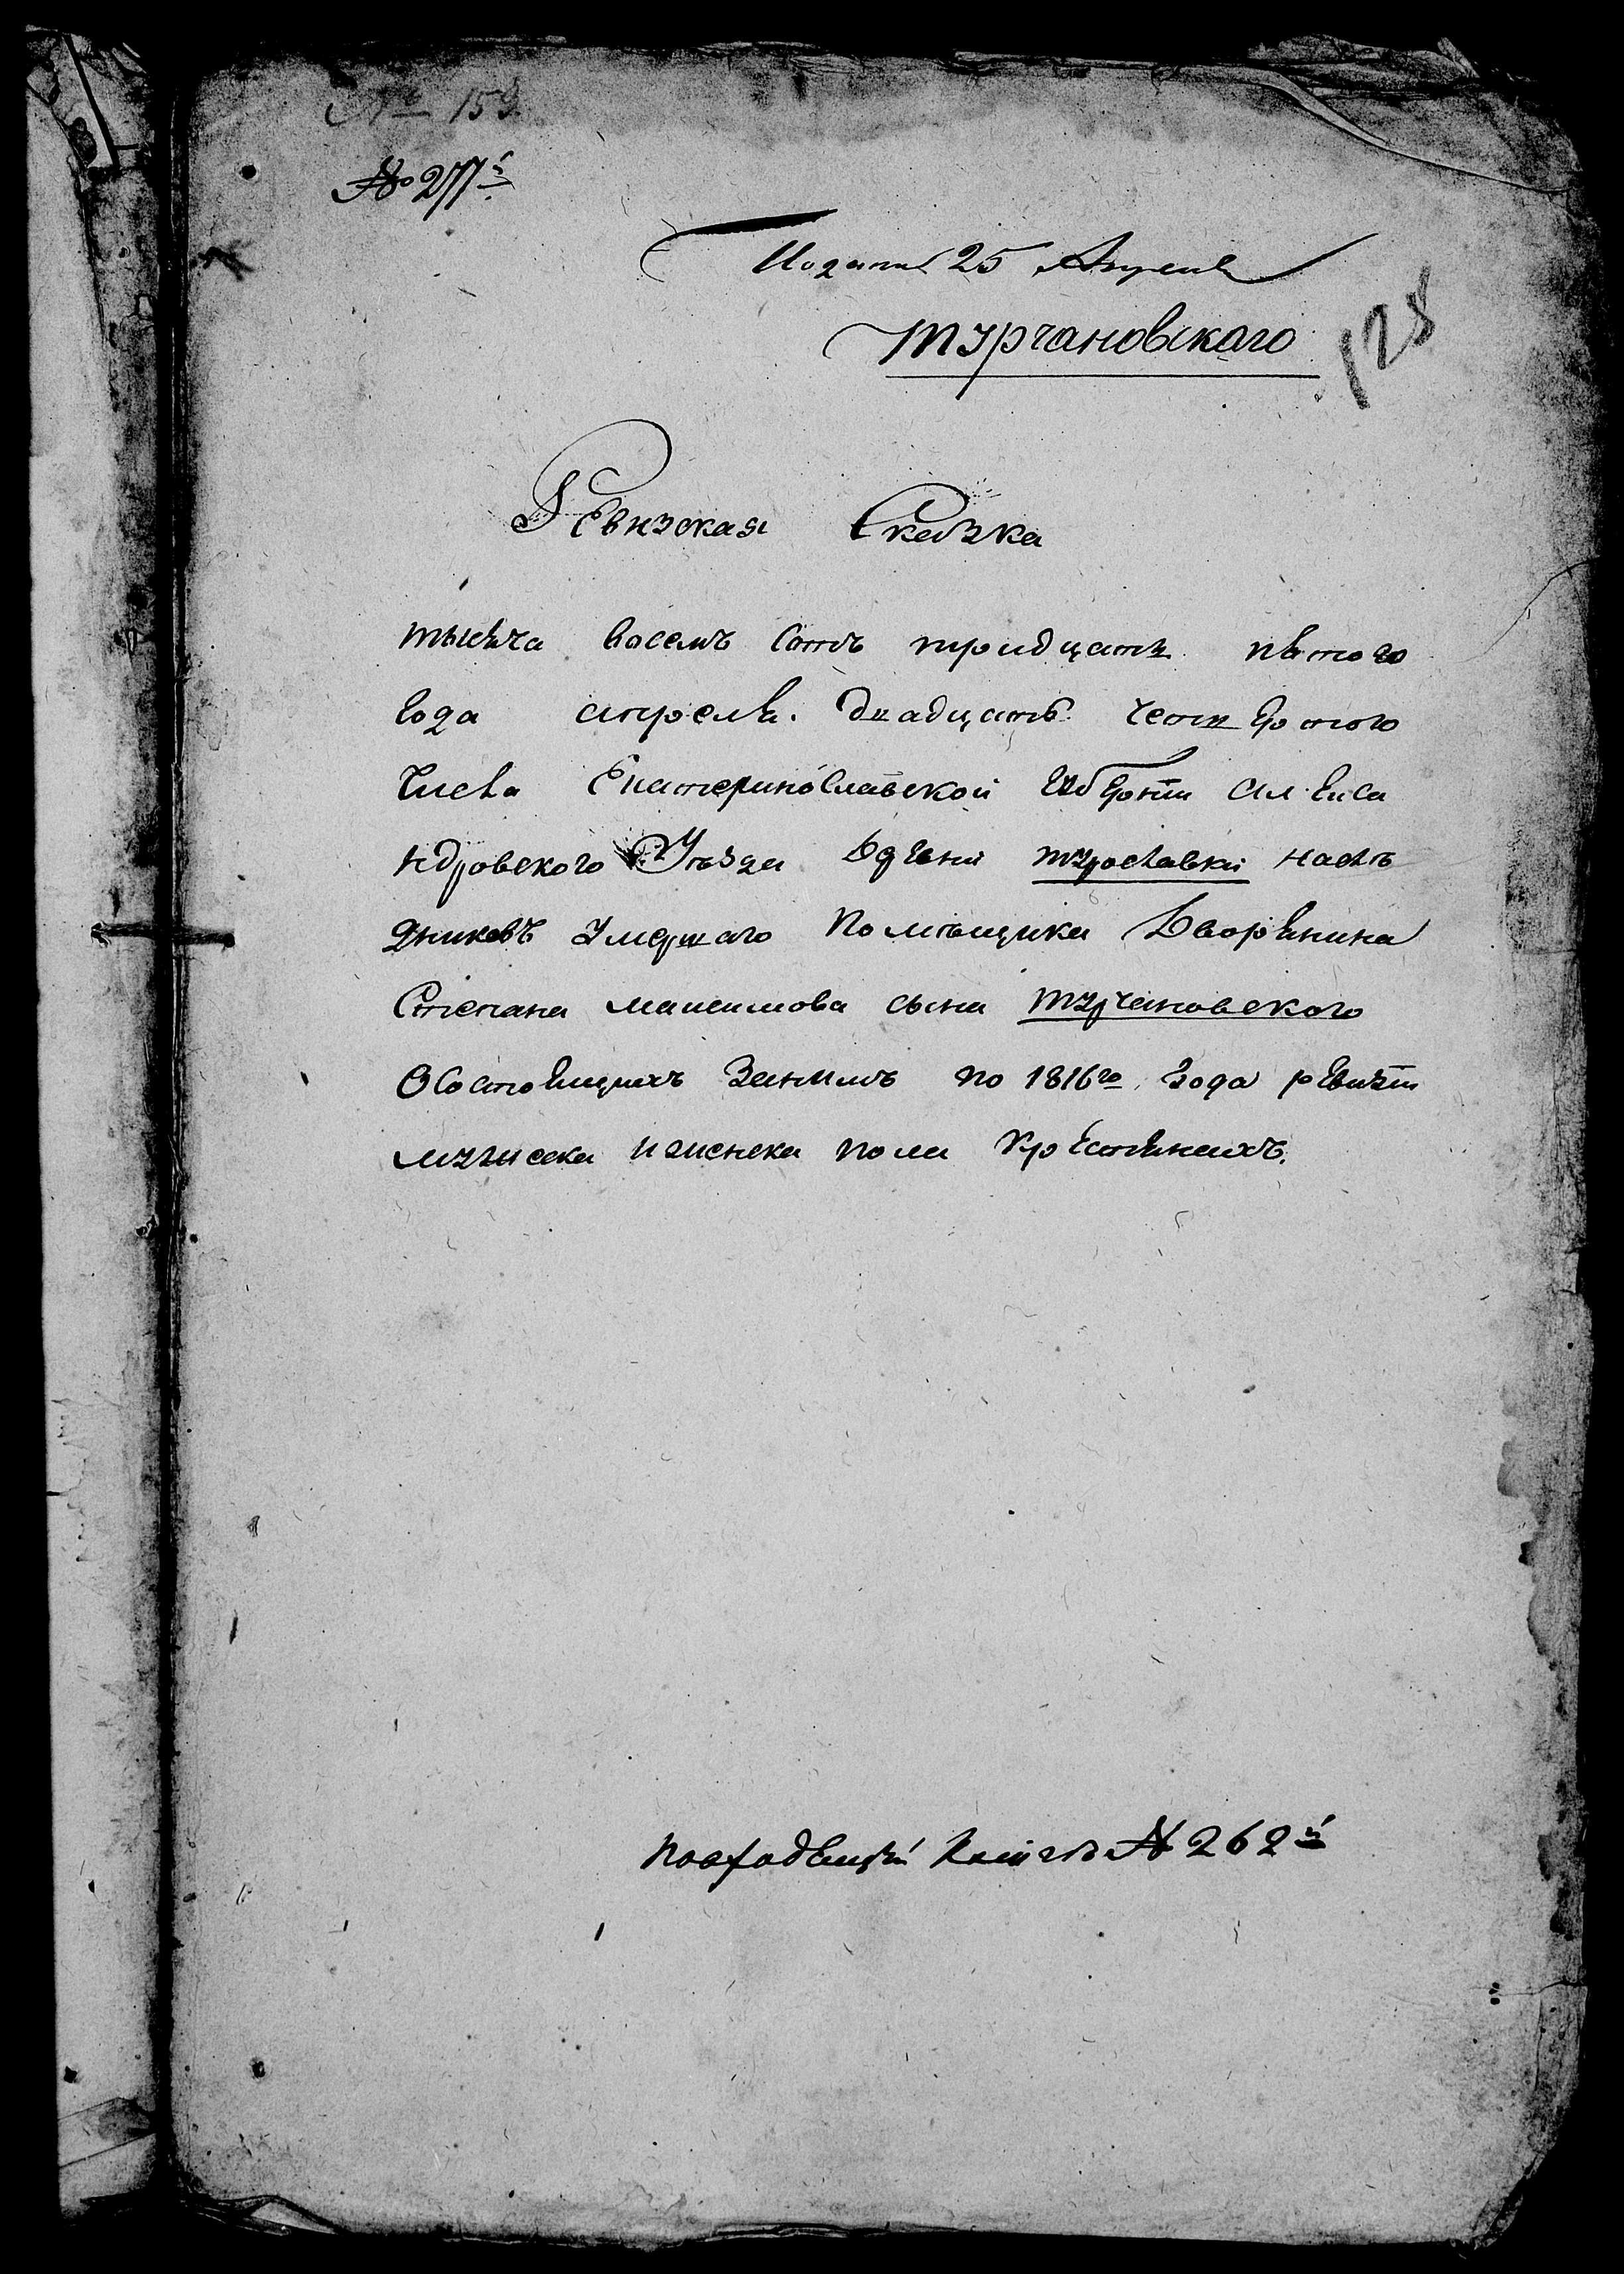 № 159.
№ 277й
Подана 25 Апреля
Турчановскаго
128
Ревизская Сказка
тысяча восемъ сотъ тридцать пятого
года апреля. двадцать четвертого
числа Екатеринославской губернiи алекса
ндровского Уѣзда деревни турославки наслѣ
дниковъ умершаго помѣщика Дворянина
Степана максимова сына турчановского
О состоящихъ Занимъ по 1816го года ревизiи
мужеска и женска пола крестьянахъ.
повходящей книгѣ № 262й